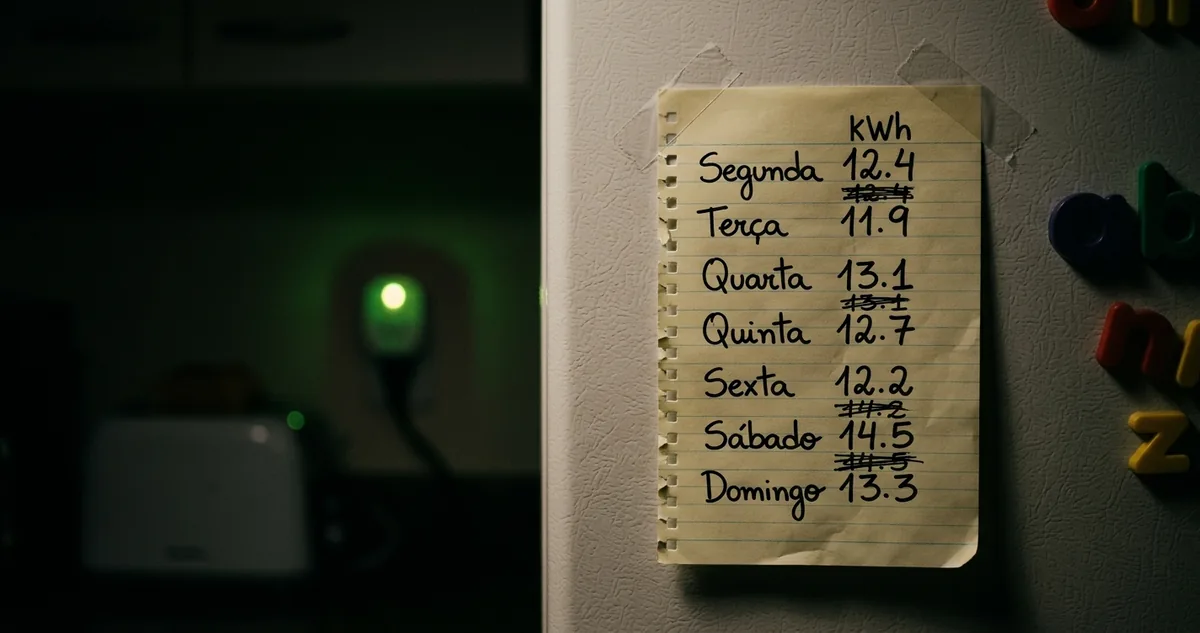 kWh
Segunda 12.4
12.4
Terça 11.9
Quarta 13.1
13.1
Quinta 12.7
Sexta 12.2
14.2
Sábado 14.5
14.5
Domingo 13.3
a b
n
z